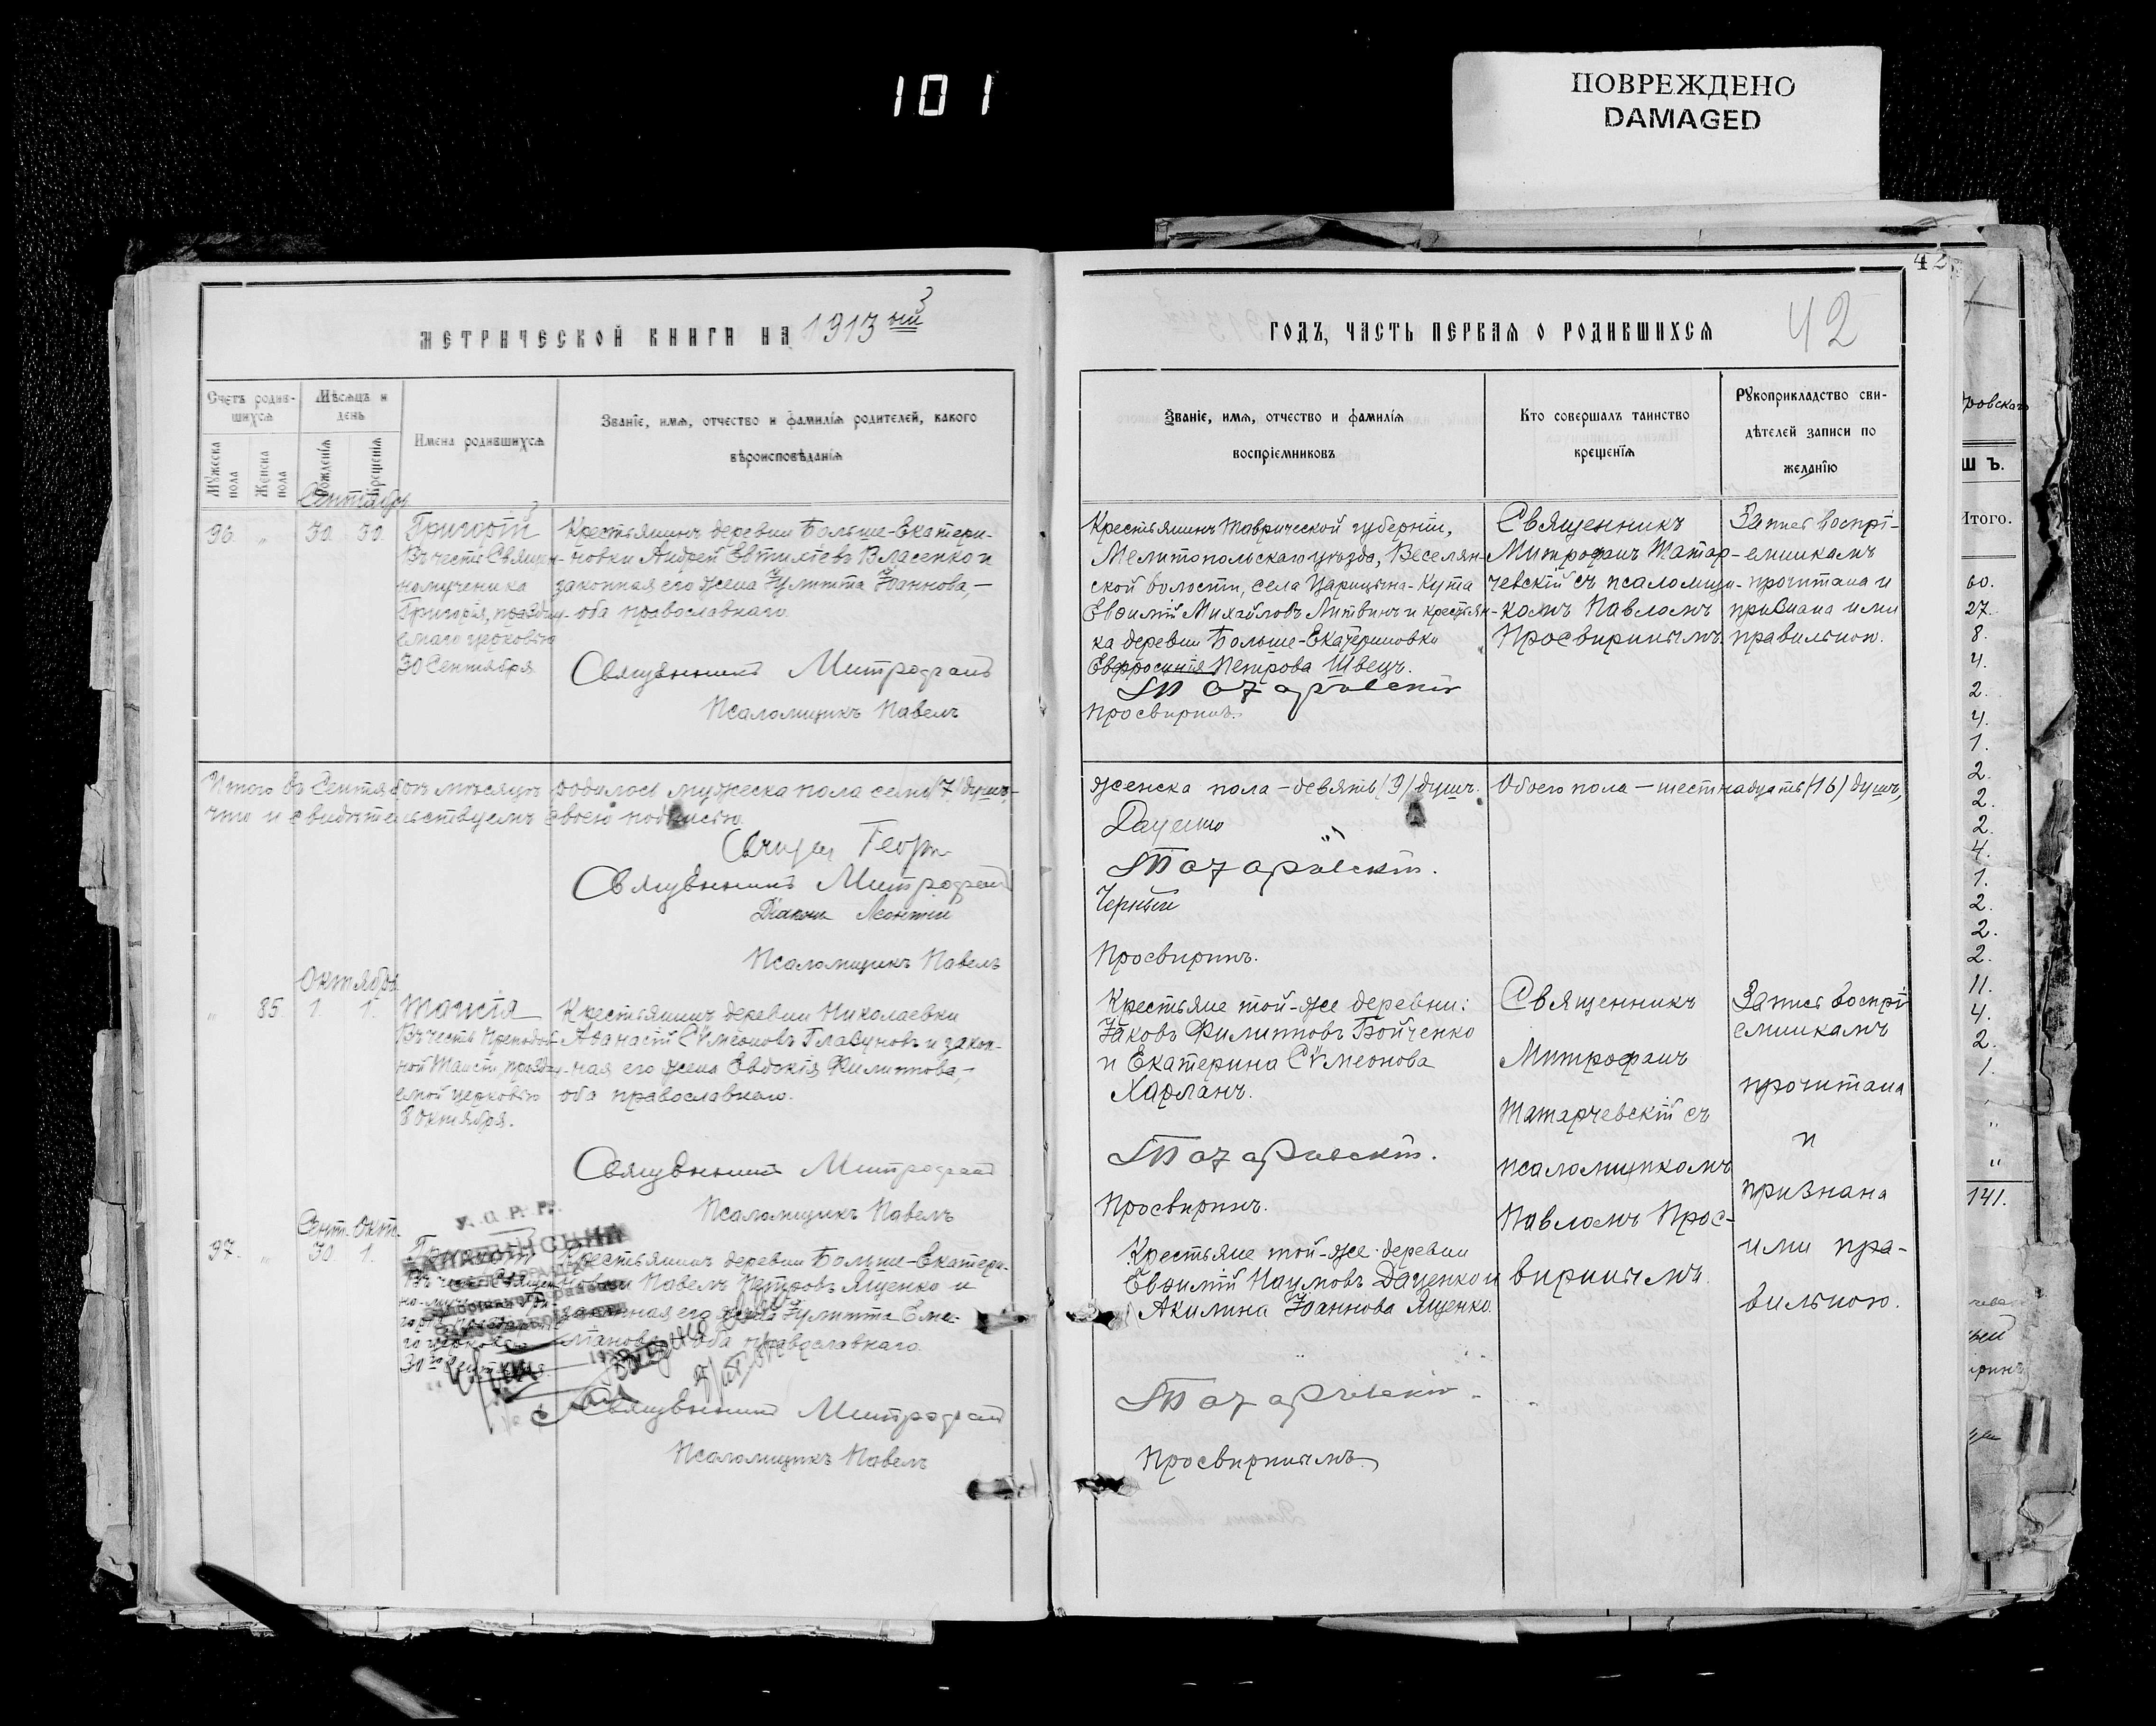 101
ПОВРЕЖДЕНО
DAMAGED
42
МЕТРИЧЕСКОЙ КНИГИ НА 1913 ый
Счетъ родив-
шихся
Мѣсяцъ и
день
Мужеска
пола
Женска
пола
Рожденія
Крещенія
Имена родившихся
Званіе, имя, отчество и фамилія родителей, какого
вѣроисповѣданія
Сентябрь
96. „ 30. 30. Григорій
Въ честь Священ-
номученика
Григорія, праздну-
емаго церковью
30 Сентября
Крестьянинъ деревни Больше-Екатери-
новки Андрей Евтихіевъ Власенко и
законная его жена Іулитта Іоаннова,—
оба православнаго.
Священникъ Митрофанъ
Псаломщикъ Павелъ
Итого въ Сентябрѣ мѣсяцѣ родилось мужеска пола семь (7) душъ,
что и свидѣтельствуемъ своею подписью.
Георг
Священникъ Митрофанъ
Діаконъ Леонтій
Псаломщикъ Павелъ
Октябрь
„ 85. 1. 1. Таисія
Въ честь Преподоб-
ной Таисіи, праздну-
емой церковью
8 Октября.
Крестьянинъ деревни Николаевки
Аѳанасій Сѵмеоновъ Главуновъ и закон-
ная его жена Евдокія Филиппова,—
оба православнаго.
Священникъ Митрофанъ
Псаломщикъ Павелъ
Сент. Окт.
97. „ 30 1. Григорій
Въ честь Священ-
церковью
30го Сентября.
Крестьянинъ деревни Больше-Екатери-
новки Павелъ Петровъ Ященко и
законная его жена Іулитта Еме-
ліанова, оба православнаго.
Священникъ Митрофанъ
Псаломщикъ Павелъ
ГОДЪ, ЧАСТЬ ПЕРВАЯ О РОДИВШИХСЯ
42
Званіе, имя, отчество и фамилія
воспріемниковъ
Кто совершалъ таинство
крещенія
Рукоприкладство сви-
дѣтелей записи по
желанію
Крестьянинъ Таврической губерніи,
Мелитопольскаго уѣзда, Веселян-
ской волости, села Царицына-Кута
Евѳимій Михайловъ Литвинъ и крестьян-
ка деревни Больше-Екатериновки
Евфросинія Петрова Швецъ.
Татарчевскій
Просвиринъ.
Священникъ
Митрофанъ Татар-
чевскій съ псаломщи-
комъ Павломъ
Просвиринымъ.
Запись воспрі-
емникамъ
прочитана и
признана ими
правильною.
женска пола – девять (9) душъ. Обоего пола – шестнадцать (16) душъ,
Даценко
Татарчевскій.
Черный
Просвиринъ.
Крестьяне той-же деревни:
Іаковъ Филипповъ Бойченко
и Екатерина Сѵмеонова
Харланъ.
Татарчевскій.
Просвиринъ.
Священникъ
Митрофанъ
Татарчевскій съ
псаломщикомъ
Павломъ Прос-
виринымъ.
Запись воспрі-
емникамъ
прочитана
и
признана
ими пра-
вильною.
Крестьяне той-же деревни
Евѳимій Наумовъ Даценко и
Акилина Іоаннова Ященко.
Татарчевскій
Просвиринымъ
ровскаго
Ш Ъ.
Итого.
60.
27.
8.
4.
2.
4.
1.
2.
2.
2.
4.
1.
2.
2.
2.
11.
4.
2.
1.
„
„
141.